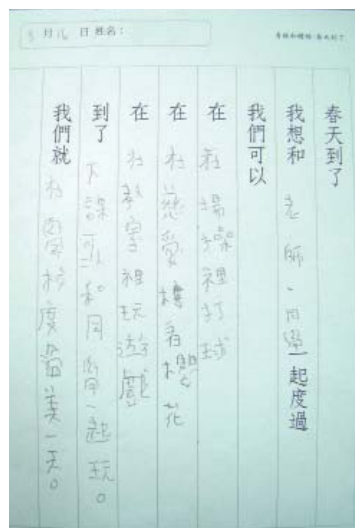 月 日 姓名：
青蛙和蟾蜍-春天到了
春天到了
我想和 老師、同學一起度過
我們可以
在 在場操裡打球
在 在慈愛樓看櫻花
在 在教室裡玩遊戲
到了 下課可以和同學一起玩。
我們就 在學校度過美一天。